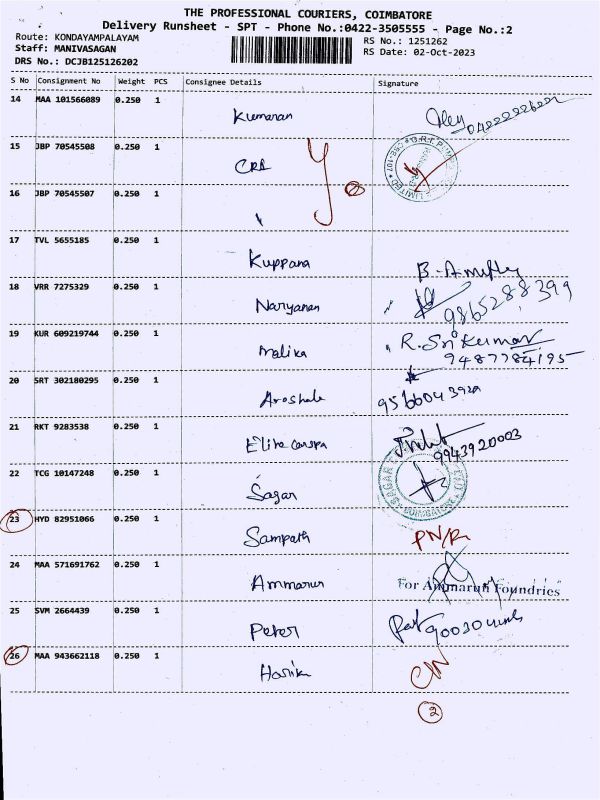 THE PROFESSIONAL COURIERS, COIMBATORE
Delivery Runsheet - SPT - Phone No.:0422-3505555 - Page No.:2
Route: KONDAYAMPALAYAM RS No.: 1251262
Staff: MANIVASAGAN RS Date: 02-Oct-2023
DRS No.: DCJB125126202
S No Consignment No Weight PCS Consignee Details Signature
14 MAA 101566089 0.250 1 Kumaran
15 JBP 70545508 0.250 1 CRI
16 JBP 70545507 0.250 1 "
17 TVL 5655185 0.250 1 Kuppana
18 VRR 7275329 0.250 1 Naryanan 9865288399
19 KUR 609219744 0.250 1 Malika R. Sri Kumar
9487784195
20 SRT 302180295 0.250 1
21 RKT 9283538 0.250 1 9943920003
22 TCG 10147248 0.250 1 Sagar SAGAR COIMBATORE
23 HYD 82951066 0.250 1 Sampath PN/R
24 MAA 571691762 0.250 1 Ammarun For Ammarun Foundries
25 SVM 2664439 0.250 1 Peter
26 MAA 943662118 0.250 1 Harika CN
2